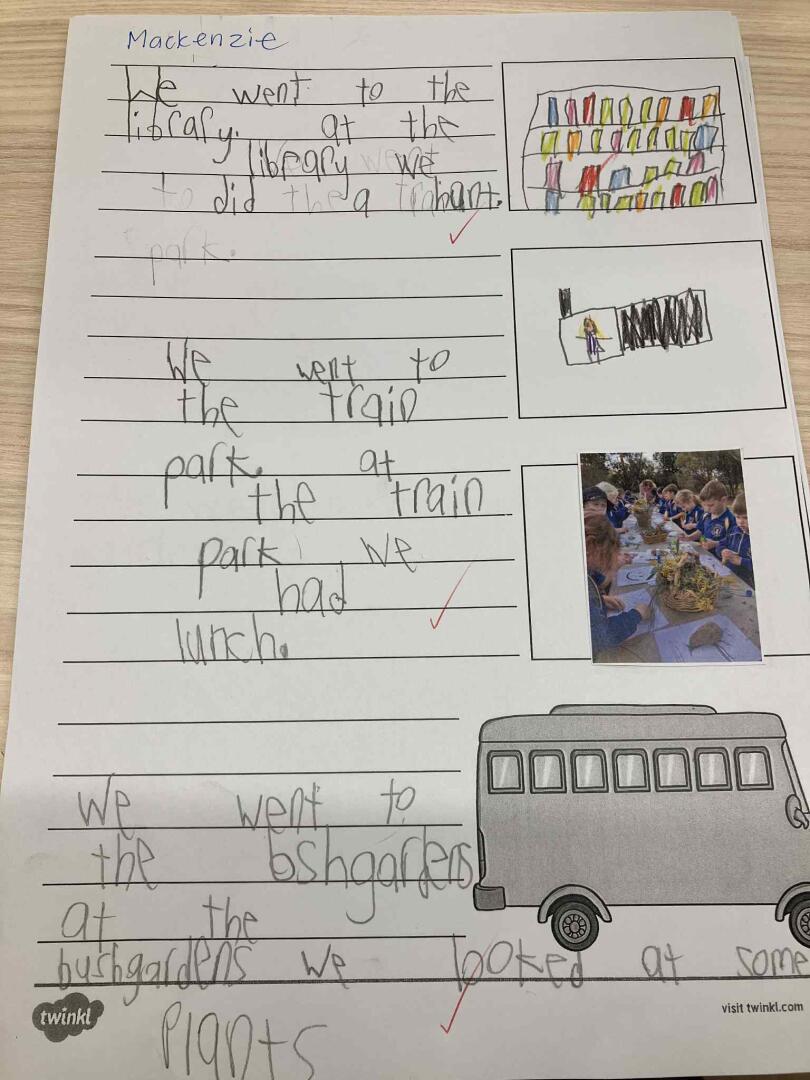 Mackenzie
We went to the
library. at the
libeary we
did a hunt.
park.
We went to
the train
park. at
the train
park we
had
lunch.
We went to
the bshgardens
at the
bushgardens we looked at some
Plants
twinkl
visit twinkl.com